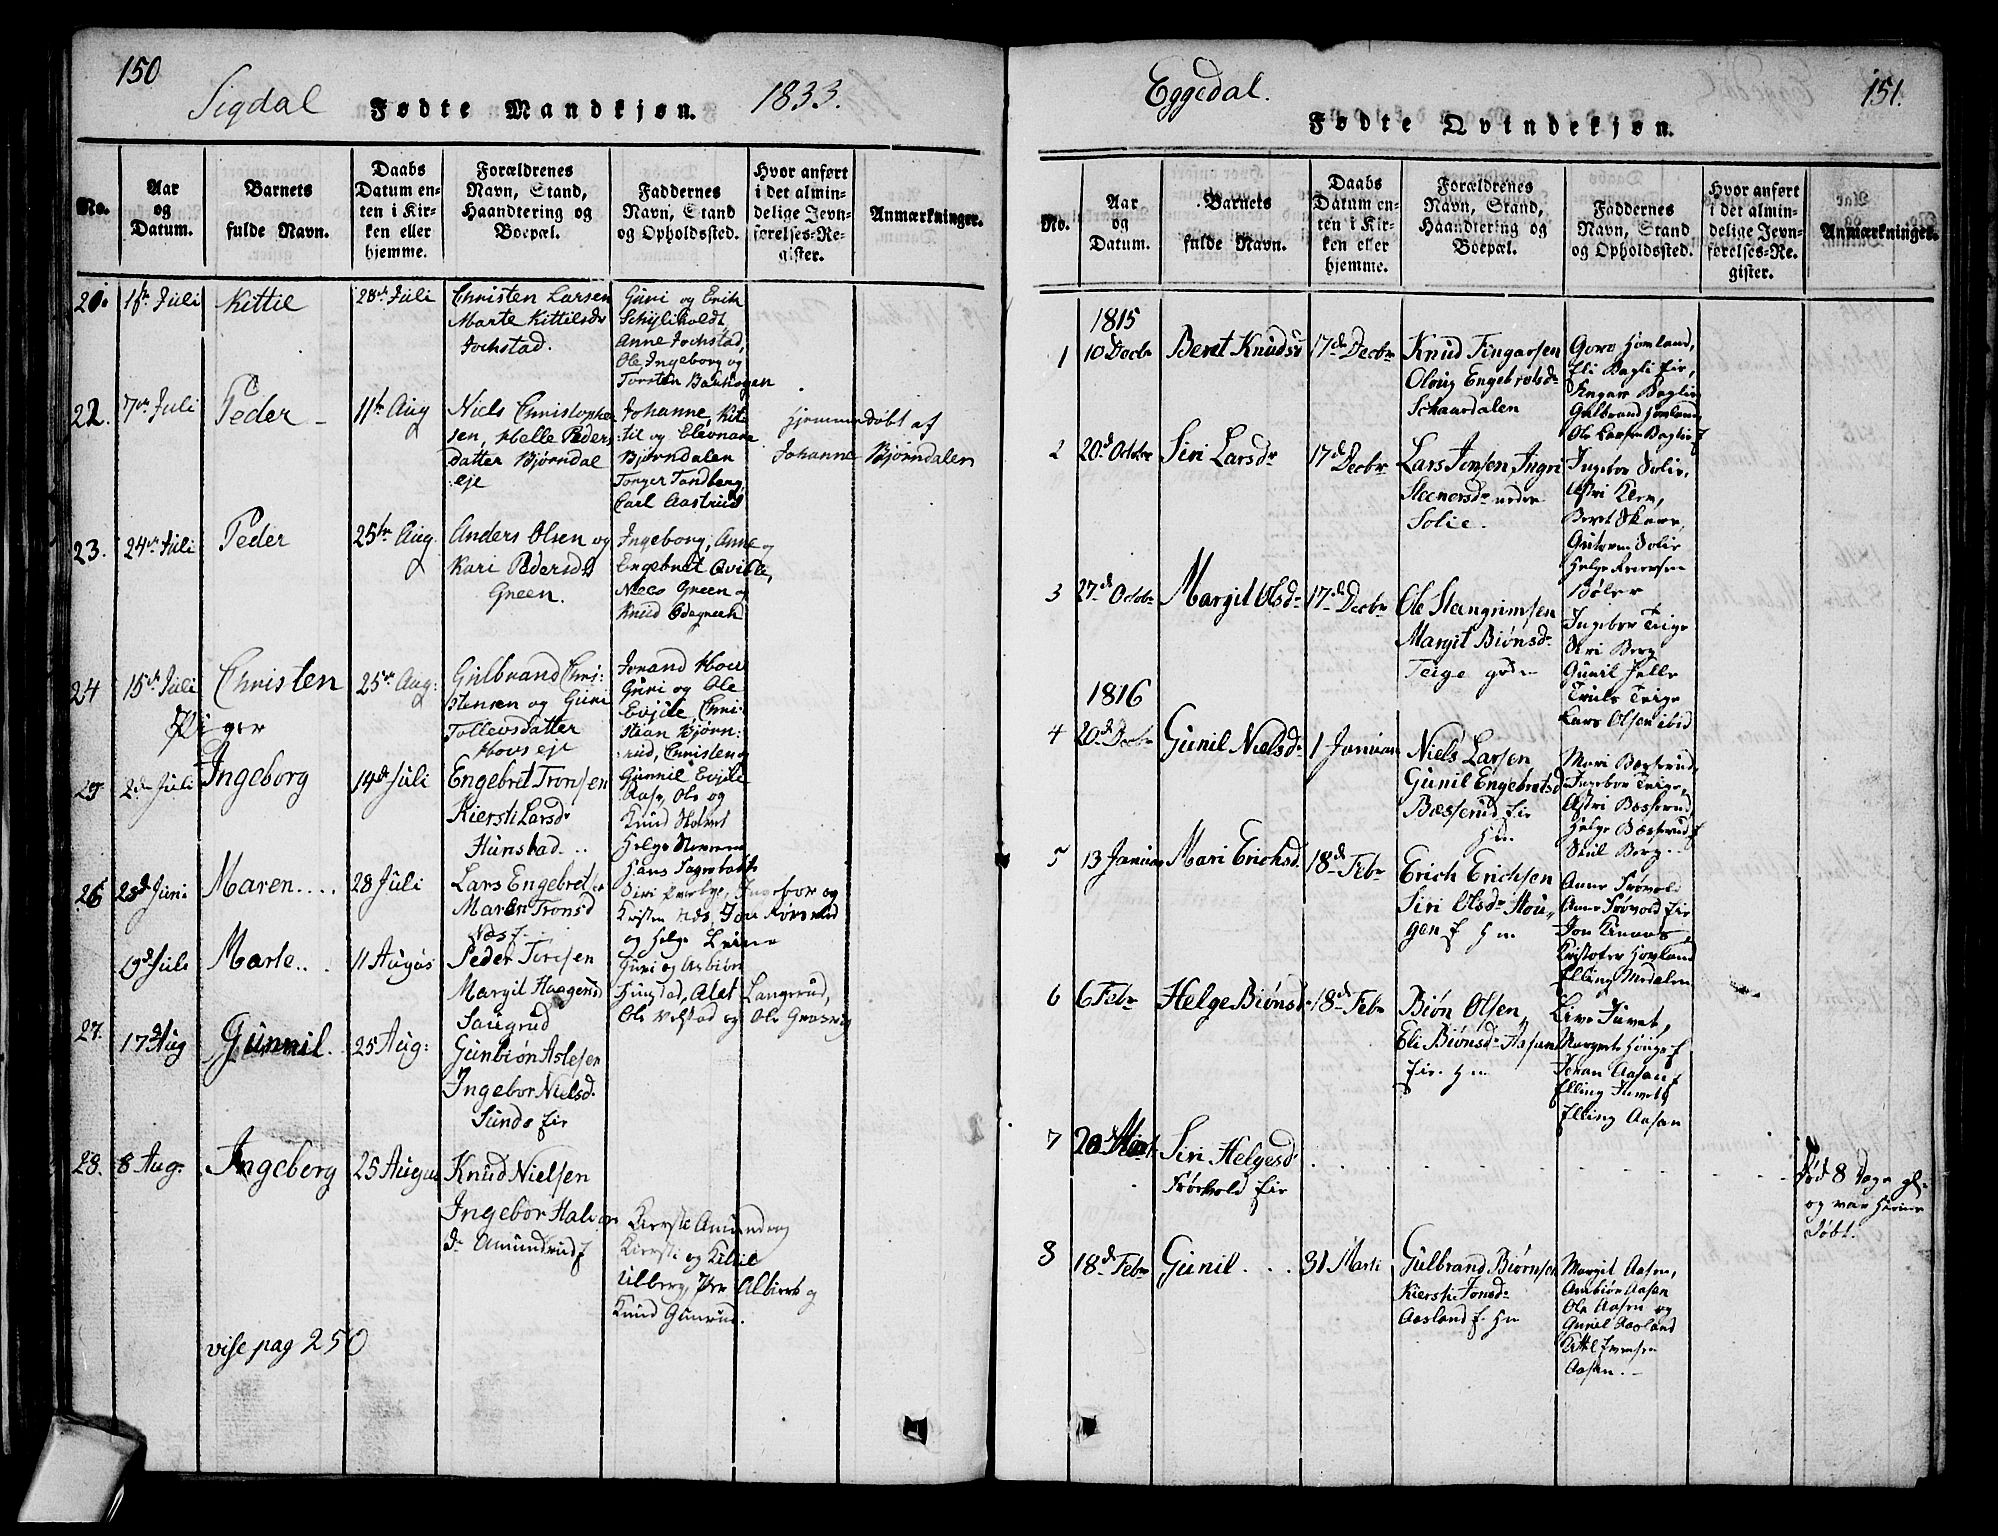 150
Sigdal Fødte Mandkjøn. 1833.
No.
Aar
og
Datum.
Barnets
fulde Navn.
Daabs
Datum en-
ten i Kir-
ken eller
hjemme.
Forældrenes
Navn, Stand,
Haandtering og
Boepæl.
Faddernes
Navn, Stand
og Opholdssted.
Hvor anført
i det almin-
delige Jevn-
førelses-Re-
gister.
Anmærkninger.
Juli
Kittil
28de Juli
Christen Larsen
Marte Kittilsdr
Jochstad.
Guri og Erik
Anne Jochstad,
Ole, Ingeborg og
Torsten
22.
7de Juli
Peder
11te Aug
Niels Christophe
sen, Helle Peders
datter Bjørndal
eje
Johanne, Kit-
til og Eleonare
Bjørndalen
Torger Tandberg
Carl Aastrud
Hjemmedøbt af
Johanne Bjørndalen
23.
24de Juli
Peder
25de Aug.
Anders Olsen og
Kari Pedersdr
Green.
Ingeborg, Anne og
Engebret
Niels Green og
Knud
24
15de Juli
Christen
25de Aug:
Gulbrand Chri-
stensen og Guri
Tollevsdatter
Hovs eje
Jorand Hov
Guri og Ole
Evjile Chri-
stian Bjørn-
rud, Christen og
Gunnil Evjile
Piger
25
2de Juli
Ingeborg
14de Juli
Engebret Tronsen
Kiersti Larsdr
Hunstad
Aase, Ole og
Knud
Helge
Hans
26
28de Juni
Maren....
28 Juli
Lars Engebretsen
Maren Tronsd
Næs
Siri
Kristen Næs, Jon
og Helge
9de Juli
Marte..
11 August
Peder Torsen
Margit Haagensd
Saugrud
Guri og Asbiør
Hunstad, Alet Langerud,
Ole Velstad og Ole
27.
17de Aug
Gunnil.
25 Aug:
Gunbiøn Aslesen
Ingebor Nielsd.
Sunds Eie
28.
8 Aug.
Ingeborg
25 August
Knud Nielsen
Ingebor Halvor
dr Amundrud
Kierste Amundrug
Kiersti og Kittil
Ulberg, Per Albiert og
Knud Gunrud.
vise pag 250
Eggedal.
151.
Fødte Qvindekjøn.
No.
Aar
og
Datum.
Barnets
fulde Navn.
Daabs
Datum en-
ten i Kir-
ken eller
hjemme.
Forældrenes
Navn, Stand,
Haandtering og
Boepæl.
Faddernes
Navn, Stand
og Opholdssted.
Hvor anført
i det almin-
delige Jevn-
førelses-Re-
gister.
Anmærkninger.
1815
1
10 Decbr
Beret Knudsd
17de Decbr
Knud Fingarsen
Oloug Engebretsdr
Schaardalen
Goro Hovland,
Eli Bagli Eie,
Fingar Baglie
Gulbrand Hovland
Ole Larsen Baglie
2
20de Octobr
Siri Larsdr
17de Decbr
Lars Jonsen, Ingri
Steenersdr nedre
Solie.
Ingebor Solie,
Astri Kleu,
Beret Skare,
Guttorm Solie
Helge
3
27de Octobr
Margit Olsdr
17de Decbr
Ole Stangrimsen
Margit Biønsdr
Teige
Ingebor Teige
Siri Berg
Gunil
Truls Teige
Lars Olsen ibid
1816
4
20de Decbr
Gunil Nielsdr
1 Januar
Niels Larsen
Gunil Engebretsd
Bæsserud Eie
Hm
Mari Bæsserud,
Ingebor Teige,
Astri Bæsserud
Helge Bæsserud
Skul Berg
5
13 Januar
Mari Erichsd.
18de Febr
Erich Erichsen
Siri Olsdr Hou-
gen
Anne Frøvold
Anne Frøvold Eie
Jon
Kristofer Hovland
Elling Medalen
6
6 Febr
Helge Biønsd
18de Febr
Biøn Olsen
Eli Biønsdr Aasan
Eie. Hm
Live Juvet,
Margrete
Joran Aasan
Elling Juvet
Elling Aasan
7
20de Mart.
Siri Helgesd
Frøvold Eie
Død 8 Dage gl:
og var Hiemme
døbt.
8
18de Febr
Gunil....
31 Marti
Gulbrand Biørnsen
Kiersti Jonsdr
Aasland
Margit Aasen,
Anbiør Aasen
Ole Aasen og
Gunil Aasland
Kittil Evensen
Aasan.